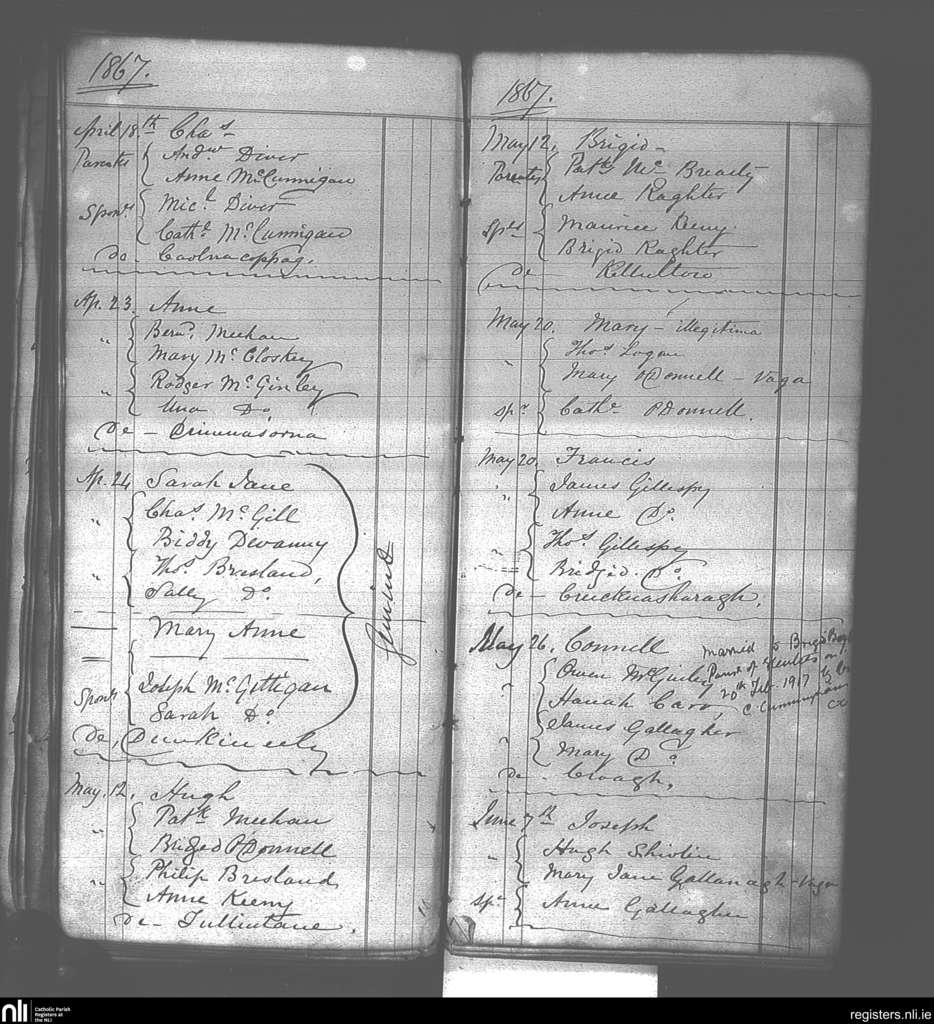 1867.
April 18th Chas
Parents Andw Diver
Anne McCunnigan
Sponrs Micl Diver
Cathe McCunnigan
de Coolnacoppag.
Ap. 23. Anne
" Bernd. Meehan
Mary Mc Closkey
" Rodger McGinley
Una Do.
de - Drimnasorna
Ap. 24 Sarah Jane
" Chas. McGill
Biddy Devanny
" Thos. Bresland,
Sally Do.
Mary Anne
Sponrs Joseph McGettigan
Sarah Do.
de, Dunkineely
Gemini
May. 12. Hugh
" Patk Meehan
Bridged O'Donnell
" Philip Bresland
Anne Keeny
de - Tullintane.
1867.
May 12, Brigid -
Parents Patk Mc Brearty
Anne Raghter
Sprs Maurice Keeny
Brigid Raghter
de - Killultore
May 20. Mary - illegitima
" Thos. Logan
Mary O'Donnell - Vaga
spr Cathe O'Donnell.
May 20. Francis
" James Gillespy
Anne Do.
" Thos. Gillespy
Bridged. Do.
de - Cruicknasharagh.
May 26. Connell
" Owen McGinley
Hanah
" James Gallagher
Mary Do.
de - Croagh.
Married to Brigid
Parish of on
20th Feb. 1917 by
C Cunningham
CC
June 7th Joseph
" Hugh Shivlin
Mary Jane Gallanagh - Vaga
spr Anne Gallagher
nli
Catholic Parish
Registers at
the NLI
registers.nli.ie